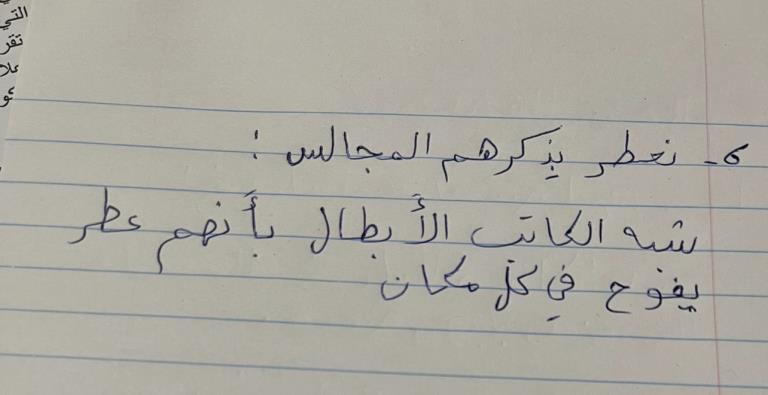 التي
تقر
علا
٦- نعطر بذكرهم المجالس :
شبه الكاتب الأبطال بأنهم عطر
يفوح في كل مكان